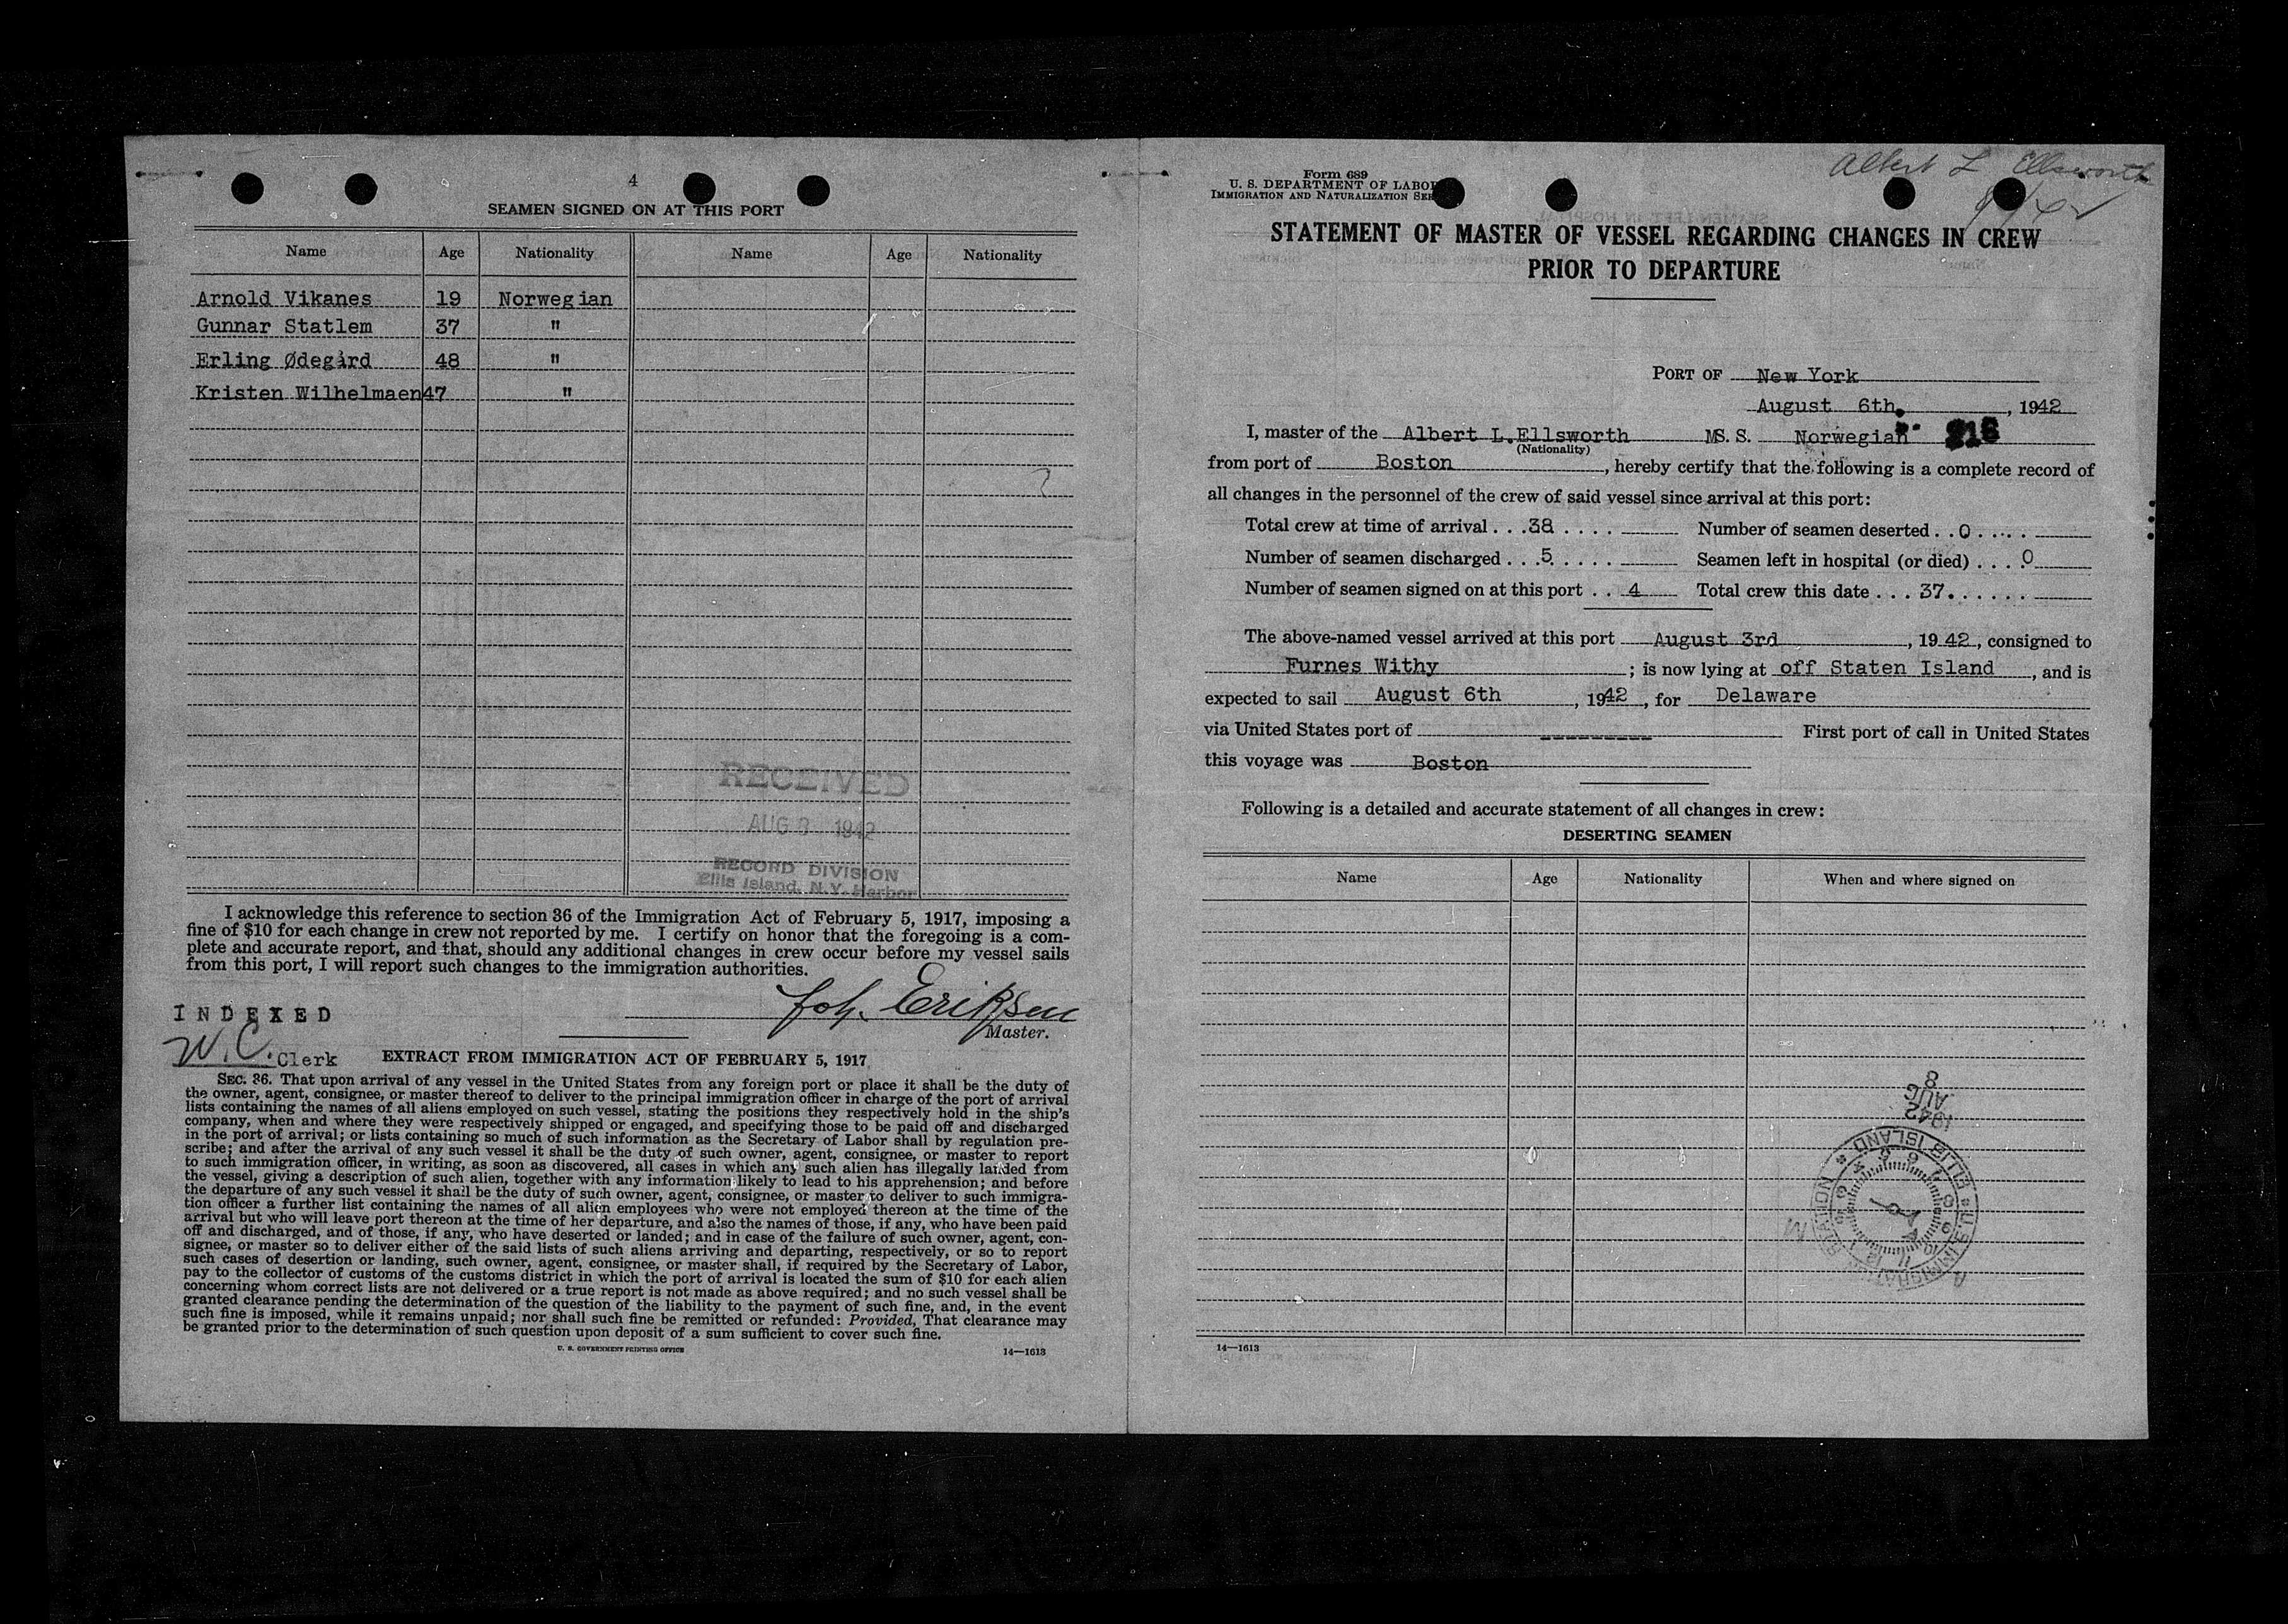 4
SEAMEN SIGNED ON AT THIS PORT
Name Age Nationality Name Age Nationality
Arnold Vikanes 19 Norwegian
Gunnar Statlem 37 "
Erling Ødegård 48 "
Kristen Wilhelmaen47 "
RECEIVED
AUG 8 1942
RECORD DIVISION
Ellis Island, N.Y. Harbor
I acknowledge this reference to section 36 of the Immigration Act of February 5, 1917, imposing a
fine of $10 for each change in crew not reported by me. I certify on honor that the foregoing is a com-
plete and accurate report, and that, should any additional changes in crew occur before my vessel sails
from this port, I will report such changes to the immigration authorities.
Joh. Eriksen
Master.
INDEXED
W. C. Clerk
EXTRACT FROM IMMIGRATION ACT OF FEBRUARY 5, 1917
SEC. 36. That upon arrival of any vessel in the United States from any foreign port or place it shall be the duty of
the owner, agent, consignee, or master thereof to deliver to the principal immigration officer in charge of the port of arrival
lists containing the names of all aliens employed on such vessel, stating the positions they respectively hold in the ship's
company, when and where they were respectively shipped or engaged, and specifying those to be paid off and discharged
in the port of arrival; or lists containing so much of such information as the Secretary of Labor shall by regulation pre-
scribe; and after the arrival of any such vessel it shall be the duty of such owner, agent, consignee, or master to report
to such immigration officer, in writing, as soon as discovered, all cases in which any such alien has illegally landed from
the vessel, giving a description of such alien, together with any information likely to lead to his apprehension; and before
the departure of any such vessel it shall be the duty of such owner, agent, consignee, or master to deliver to such immigra-
tion officer a further list containing the names of all alien employees who were not employed thereon at the time of the
arrival but who will leave port thereon at the time of her departure, and also the names of those, if any, who have been paid
off and discharged, and of those, if any, who have deserted or landed; and in case of the failure of such owner, agent, con-
signee, or master so to deliver either of the said lists of such aliens arriving and departing, respectively, or so to report
such cases of desertion or landing, such owner, agent, consignee, or master shall, if required by the Secretary of Labor,
pay to the collector of customs of the customs district in which the port of arrival is located the sum of $10 for each alien
concerning whom correct lists are not delivered or a true report is not made as above required; and no such vessel shall be
granted clearance pending the determination of the question of the liability to the payment of such fine, and, in the event
such fine is imposed, while it remains unpaid; nor shall such fine be remitted or refunded: Provided, That clearance may
be granted prior to the determination of such question upon deposit of a sum sufficient to cover such fine.
U. S. GOVERNMENT PRINTING OFFICE 14—1613
Albert L Ellsworth
Form 689
U. S. DEPARTMENT OF LABOR
IMMIGRATION AND NATURALIZATION SER
STATEMENT OF MASTER OF VESSEL REGARDING CHANGES IN CREW
PRIOR TO DEPARTURE
PORT OF New York
August 6th, 1942
I, master of the Albert L.Ellsworth MS. S. Norwegian
(Nationality)
from port of Boston, hereby certify that the following is a complete record of
all changes in the personnel of the crew of said vessel since arrival at this port:
Total crew at time of arrival . . .38 . . . . Number of seamen deserted . . 0 . . . .
Number of seamen discharged . . .5. . . . . . Seamen left in hospital (or died) . . . . 0
Number of seamen signed on at this port . . 4 Total crew this date . . . 37. . . . . .
The above-named vessel arrived at this port August 3rd, 1942, consigned to
Furnes Withy; is now lying at off Staten Island, and is
expected to sail August 6th, 1942, for Delaware
via United States port of --------- First port of call in United States
this voyage was Boston
Following is a detailed and accurate statement of all changes in crew:
DESERTING SEAMEN
Name Age Nationality When and where signed on
1942
AUG
8
U.S. IMMIGRATION STATION * ELLIS ISLAND *
14—1613